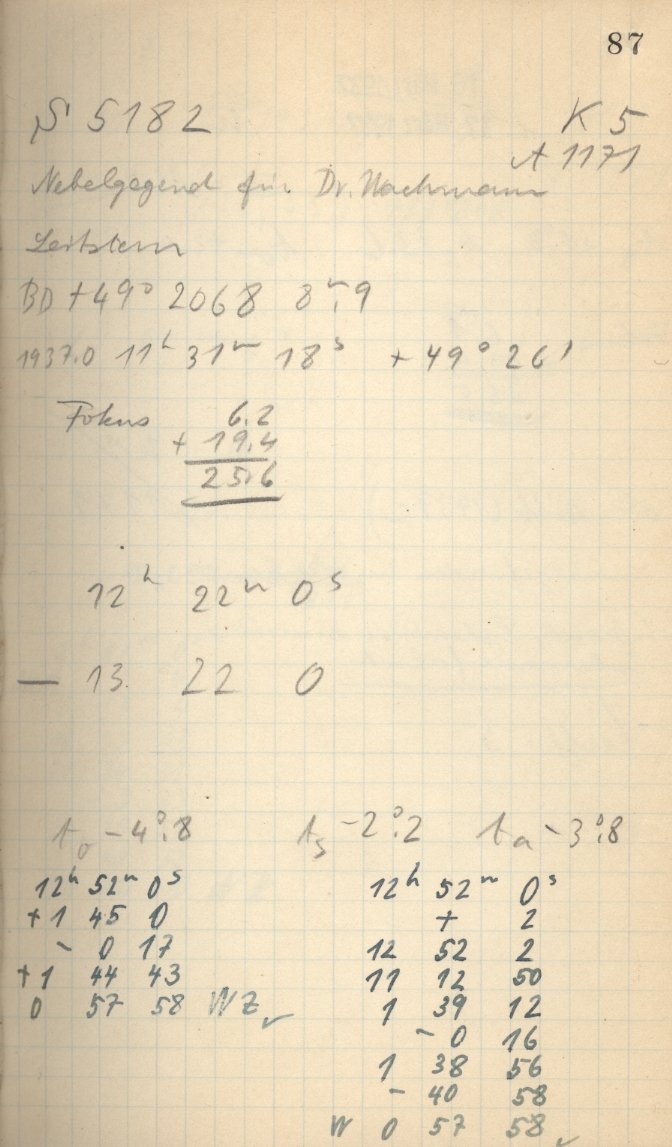 87
S 5182 K 5
A 1171
Nebelgegend für Dr. Hachmann
Leitstern
BD +49° 2068 8ᵐ.9
1937.0 11ʰ 31ᵐ 18ˢ +49° 26'
Fokus 6.2
+ 19.4
25.6
12ʰ 22ᵐ 0ˢ
— 13. 22 0
t₀ -4°.8 tₛ -2°.2 tₐ -3°.8
12ʰ 52ᵐ 0ˢ
+1 45 0
- 0 17
+1 44 43
0 57 58 WZ ✓
12ʰ 52ᵐ 0ˢ
+ 2
12 52 2
11 12 50
1 39 12
- 0 16
1 38 56
- 40 58
W 0 57 58 ✓